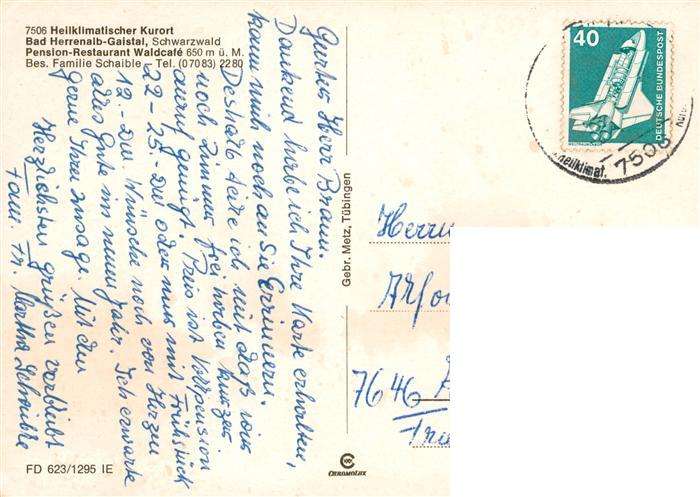 7506 Heilklimatischer Kurort
Bad Herrenalb-Gaistal, Schwarzwald
Pension-Restaurant Waldcafé 650 m ü. M.
Bes. Familie Schaible - Tel. (07083) 2280
Guter Herr Braun.
Dankend habe ich Ihre Karte erhalten,
kann mich noch an Sie Erinnern.
Deshalb teile ich mit daß wir
noch Zimmer frei haben kurzer.
anruf genügt. Preis ist Vollpension
22-25.- DM oder nur mit Frühstück
12.- DM. Wünsche noch von Herzen
alles Gute im neuen Jahr. Ich erwarte
gerne Ihre Zusage. Mit den
Herzlichsten grüßen verbleibt
Fam. Fr. Martha Schaible
FD 623/1295 IE
Gebr. Metz, Tübingen
CHROMOLUX
40
DEUTSCHE BUNDESPOST
7506
Heilklimat.
Herrn
7646